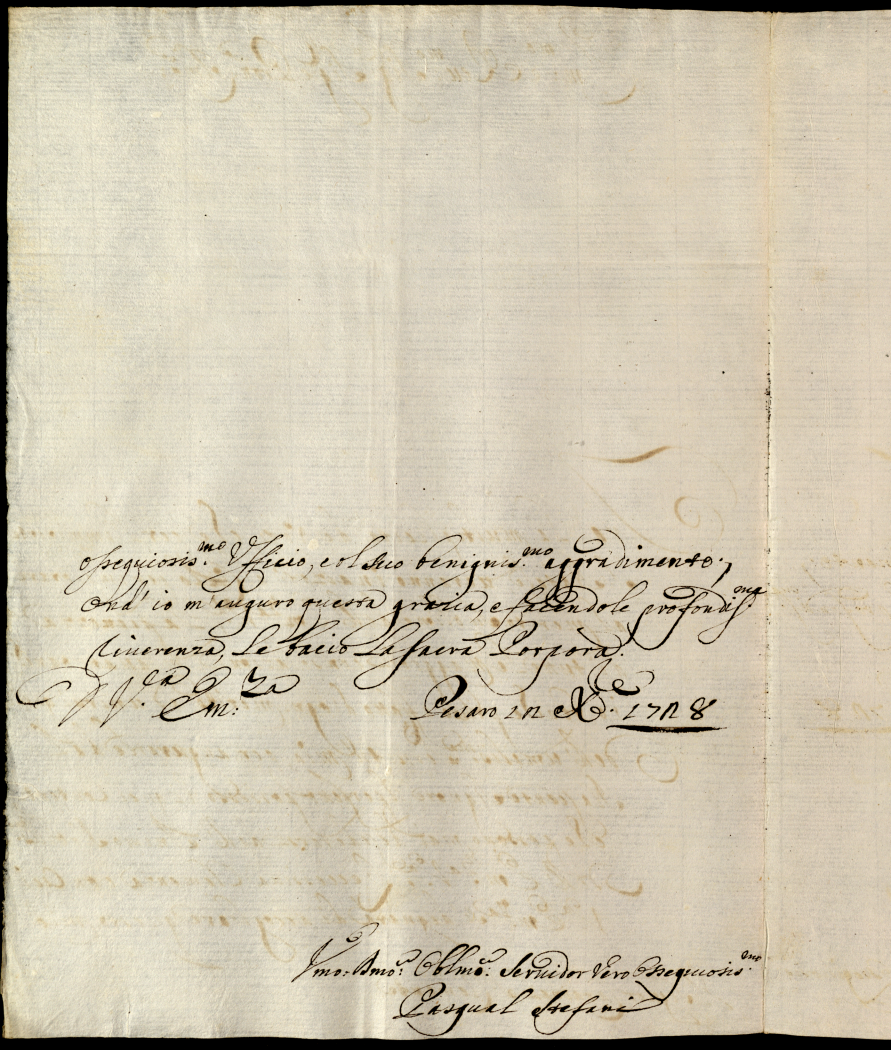 ossequiosis.mo Vfficio, e ol suo benignis.mo aggradimento;
Ond' io m'auguro questa grazia, e facendole profondis.ma
riuerenza, Le bacio La Sacra Porpora.
D V.ra Em:za Pesaro 12 Xbre. 1728
Vmo: Dmo: Oblmo: Seruidor Vero Ossequiosis.mo
Pasqual Stefani